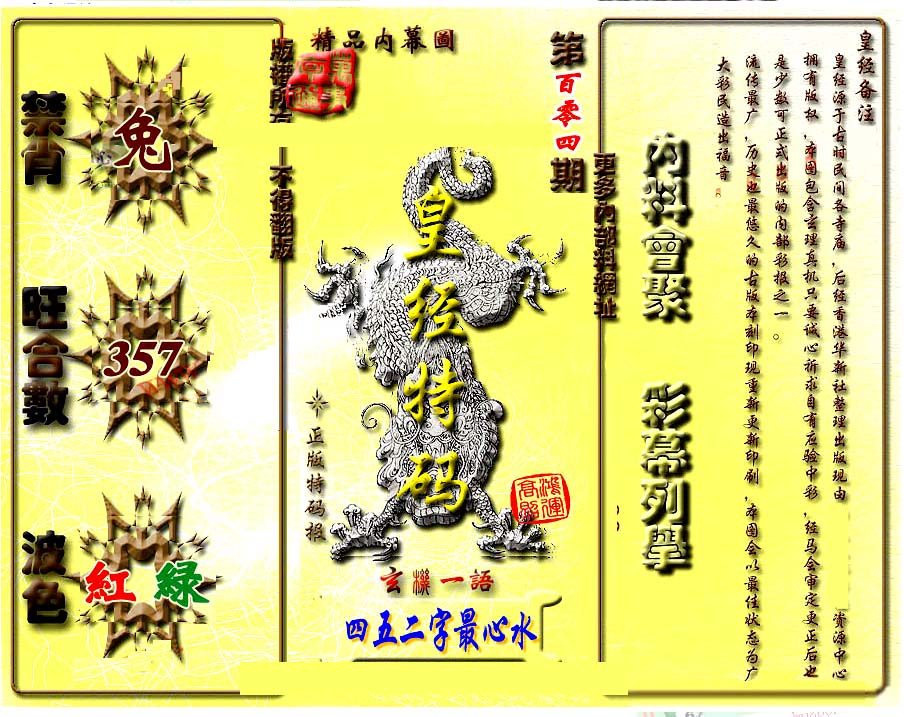 精品内幕圖
版權所有
不得翻版
第百零四期
更多內部料網址
禁肖
兔
旺合數
357
波色
紅 綠
皇经特码
正版特码报
鴻運高照
玄機一語
四五二字最心水
內料會聚
彩幕列舉
皇经备注
皇经源于古时民间各寺庙，后经香港华新社整理出版现由 资源中心
拥有版权，本图包含玄理真机只要诚心祈求自有应验中彩，经马会审定更正后也
是少数可正式出版的内部彩报之一。
流传最广，历史也最悠久的古版本刻印现重新更新印刷，本图会以最佳状态为广
大彩民造出福音